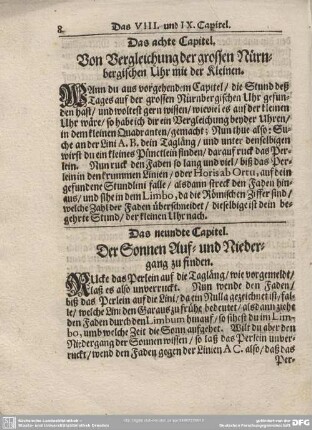 8.
Das VIII. und IX. Capitel.
Das achte Capitel.
Von Vergleichung der grossen Nürn-
bergischen Uhr mit der Kleinen.
WAnn du aus vorgehendem Capitel / die Stund deß
Tages auf der grossen Nürnbergischen Uhr gefun-
den hast / und woltest gern wissen / wieviel es auf der kleinen
Uhr wäre / so hab ich dir ein Vergleichung beyder Uhren /
in dem kleinen Quadranten / gemacht: Nun thue also: Su-
che an der Lini A. B. dein Taglång / und unter denselbigen
wirst du ein kleines Pünctlein finden / darauf ruck das Per-
lein. Nun ruck den Faden so lang und viel / biß das Per-
lein in den krummen Linien / oder Horis ab Ortu, auf dein
gefundene Stundlini falle / alsdann streck den Faden hin-
aus / und sihe in dem Limbo, da die Römischen Ziffer sind /
welche Zahl der Faden überschneidet / dieselbige ist dein be-
gehrte Stund / der kleinen Uhr nach.
Das neundte Capitel.
Der Sonnen Auf- und Nieder-
gang zu finden.
RUcke das Perlein auf die Taglång / wie vorgemeldt /
laß es also unverruckt. Nun wende den Faden /
biß das Perlein auf die Lini / da ein Nulla gezeichnet ist / fal-
le / welche Lini den Garaus zu frühe bedeutet / alsdann ziehe
den Faden durch den Limbum hinauf / so sihest du im Lim-
bo, umb welche Zeit die Sonn aufgehet. Wilt du aber den
Nidergang der Sonnen wissen / so laß das Perlein unver-
ruckt / wend den Faden gegen der Linien A C. also / daß das
Per-